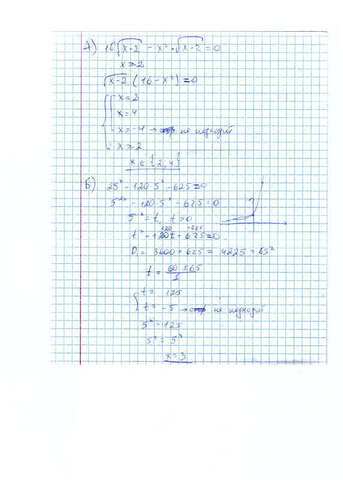 A) 16√x-2 - x²·√x-2 = 0
x ≥ 2
√x-2 (16 - x²) = 0
x = 2
x = 4
x = -4 → не подходит
x ≥ 2
x ∈ {2, 4}
Б) 25ˣ - 120·5ˣ - 625 = 0
5²ˣ - 120·5ˣ - 625 = 0
5ˣ = t, t > 0
t² - 120t - 625 = 0
D₁ = 3600 + 625 = 4225 = 65²
t = 60 ± 65 / 1
t = 125
t = -5 → не подходит
5ˣ = 125
5ˣ = 5³
x = 3